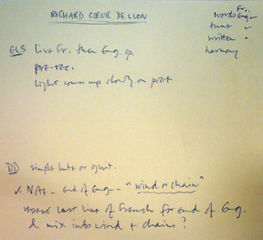 RICHARD CŒUR DE LION
Fr.
words Eng
written
harmony
ELS live Fr. then Eng.
pre-rec.
Light comes up slowly on
DD simple lute or
✓ NOTE - end of Eng - "wind or chain"
last line of French for end of Eng.
& mix into wind + chains?